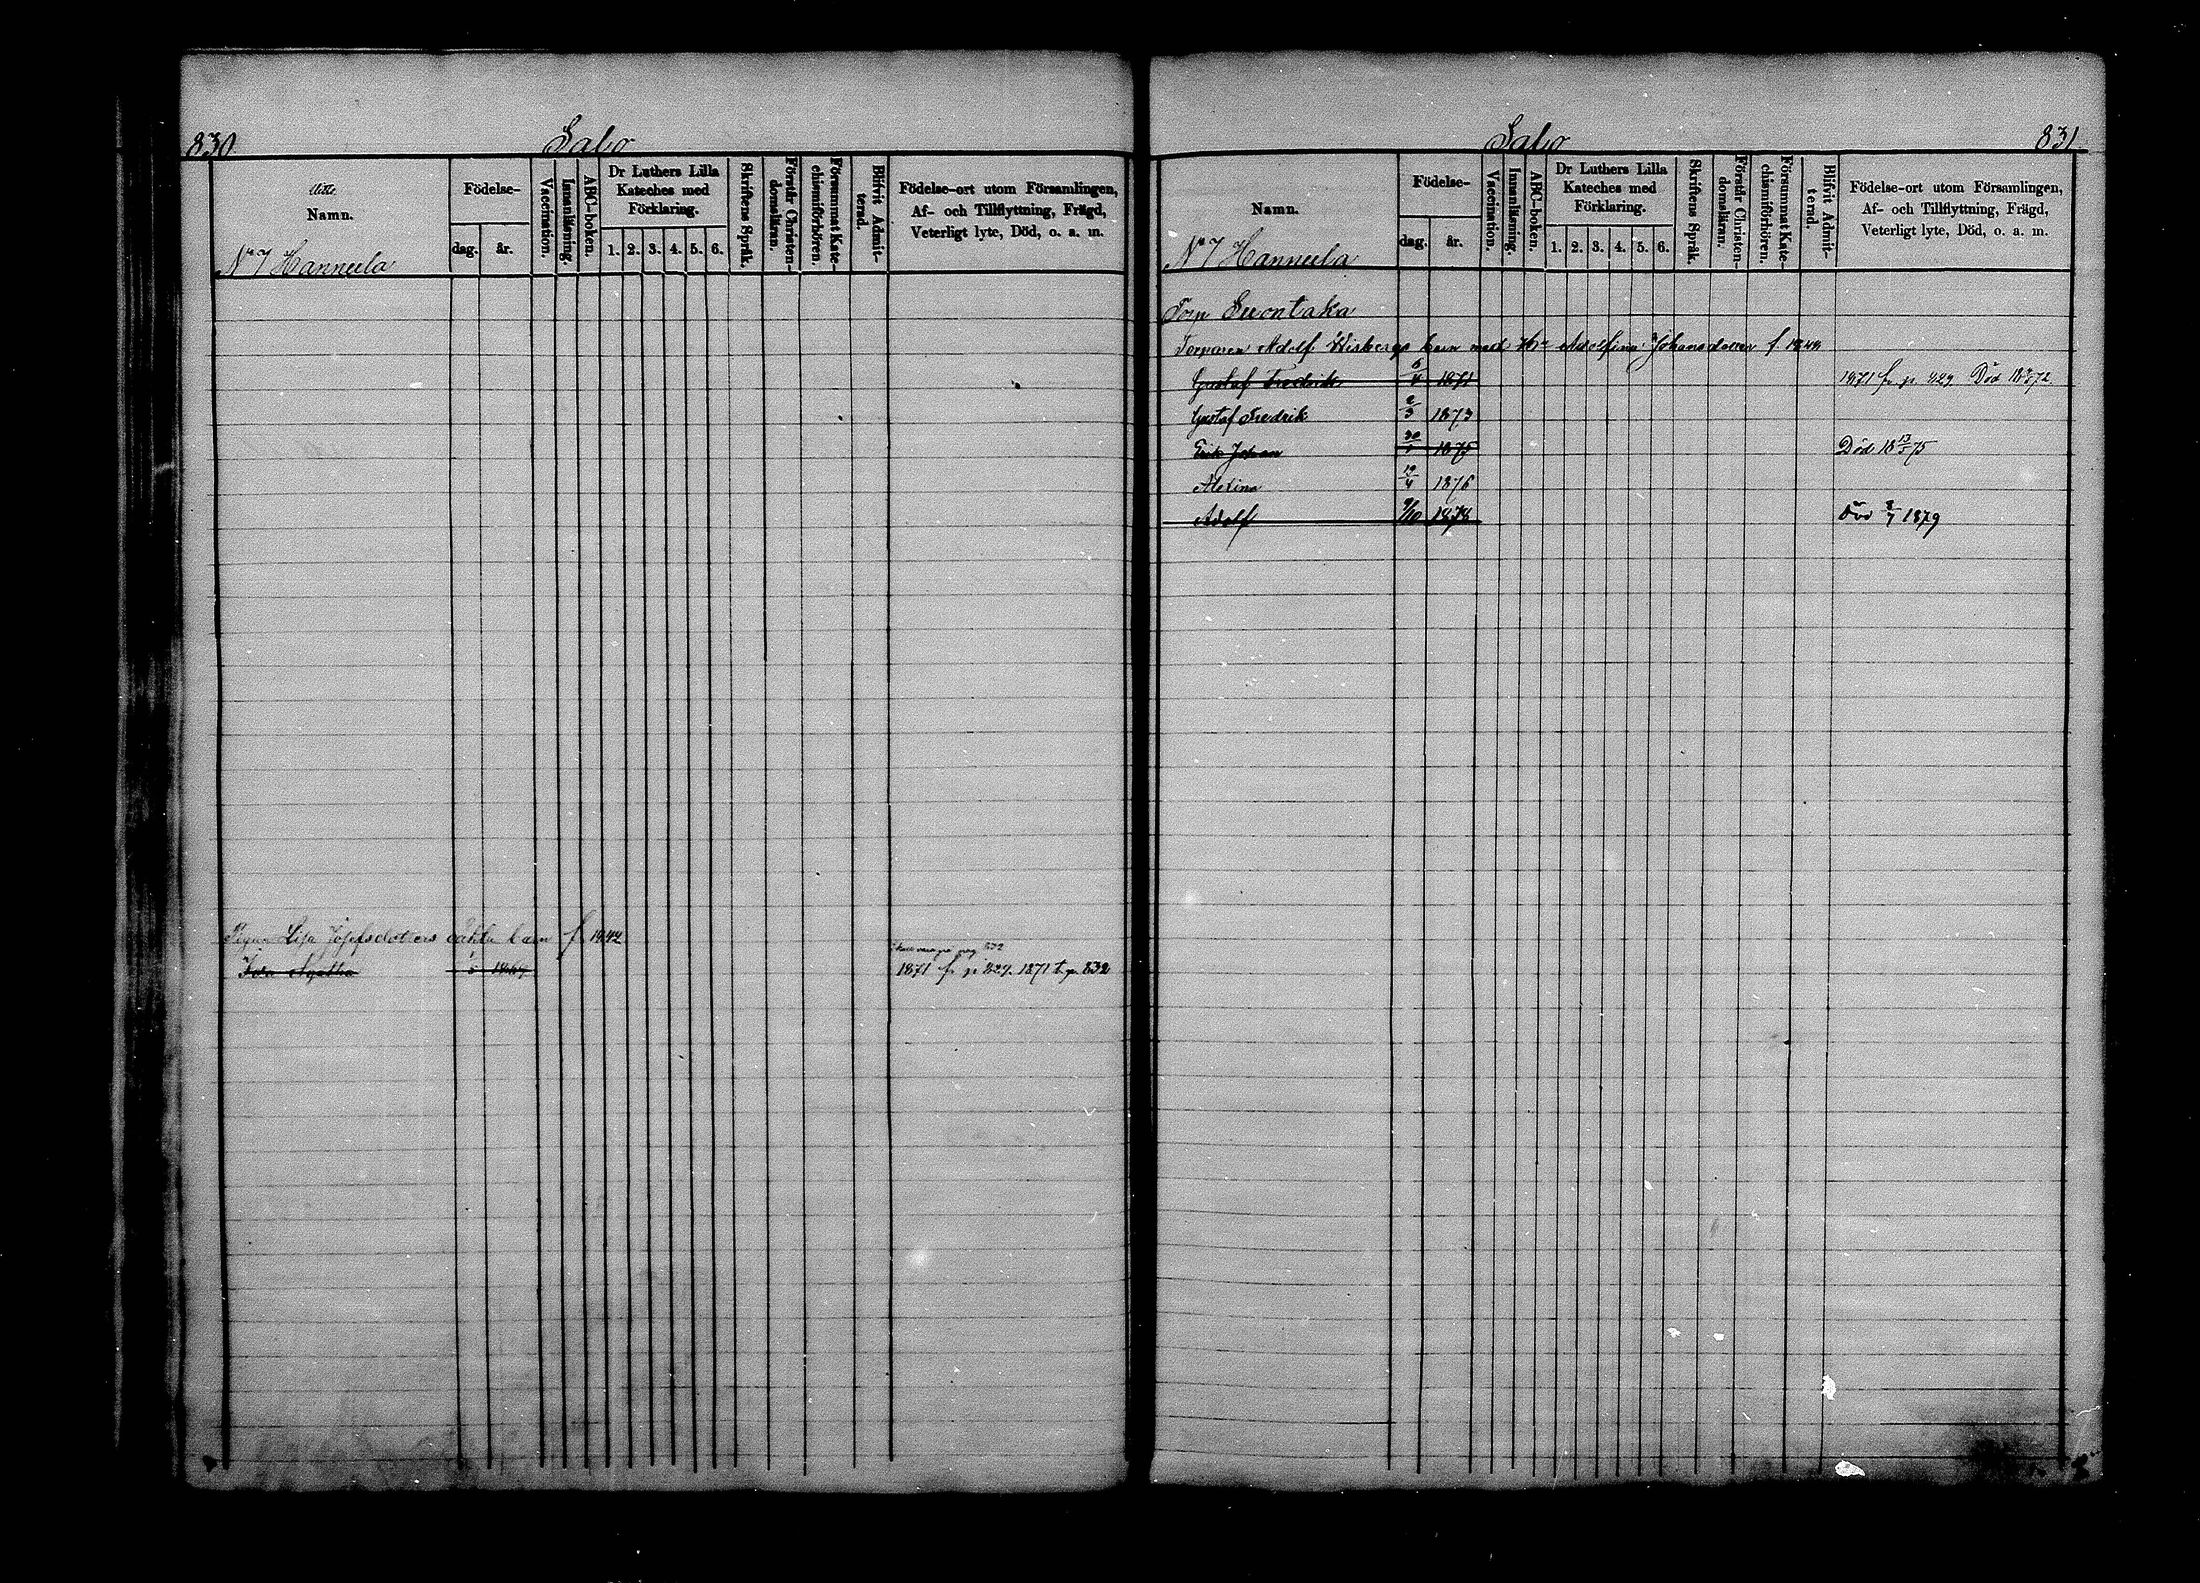 830 Salo
Namn.
Födelse-
dag. år.
Vaccination.
Innanläsning.
ABC-boken.
Dr Luthers Lilla Kateches med Förklaring.
1. 2. 3. 4. 5. 6.
Skriftens Språk.
Förstår Christendomsläran.
Försummat Katechismiförhören.
Blifvit Admitterad.
Födelse-ort utom Församlingen,
Af- och Tillflyttning, Frägd,
Veterligt lyte, Död, o. a. m.
No 7 Hannula
Pigan Lisa Josefsdotters oäkta barn f. 1842
pag 832
Ida Agatha 1871 fr. p. 829. 1871 t. p. 832
Salo 831
Namn.
Födelse-
dag. år.
Vaccination.
Innanläsning.
ABC-boken.
Dr Luthers Lilla Kateches med Förklaring.
1. 2. 3. 4. 5. 6.
Skriftens Språk.
Förstår Christendomsläran.
Försummat Katechismiförhören.
Blifvit Admitterad.
Födelse-ort utom Församlingen,
Af- och Tillflyttning, Frägd,
Veterligt lyte, Död, o. a. m.
No 7 Hannula
Torp Suontaka
Torparen Adolf Wisbergs barn med Adolfina Johansdotter f. 1844
Gustaf Fredrik 1871 1871 fr. p. 829 Död
Gustaf Fredrik 2/3 1873
Erik Johan 30/1 1875 Död 18 13/5 75
Alexina 19/4 1876
Adolf 9/10 1878 Död 8/7 1879